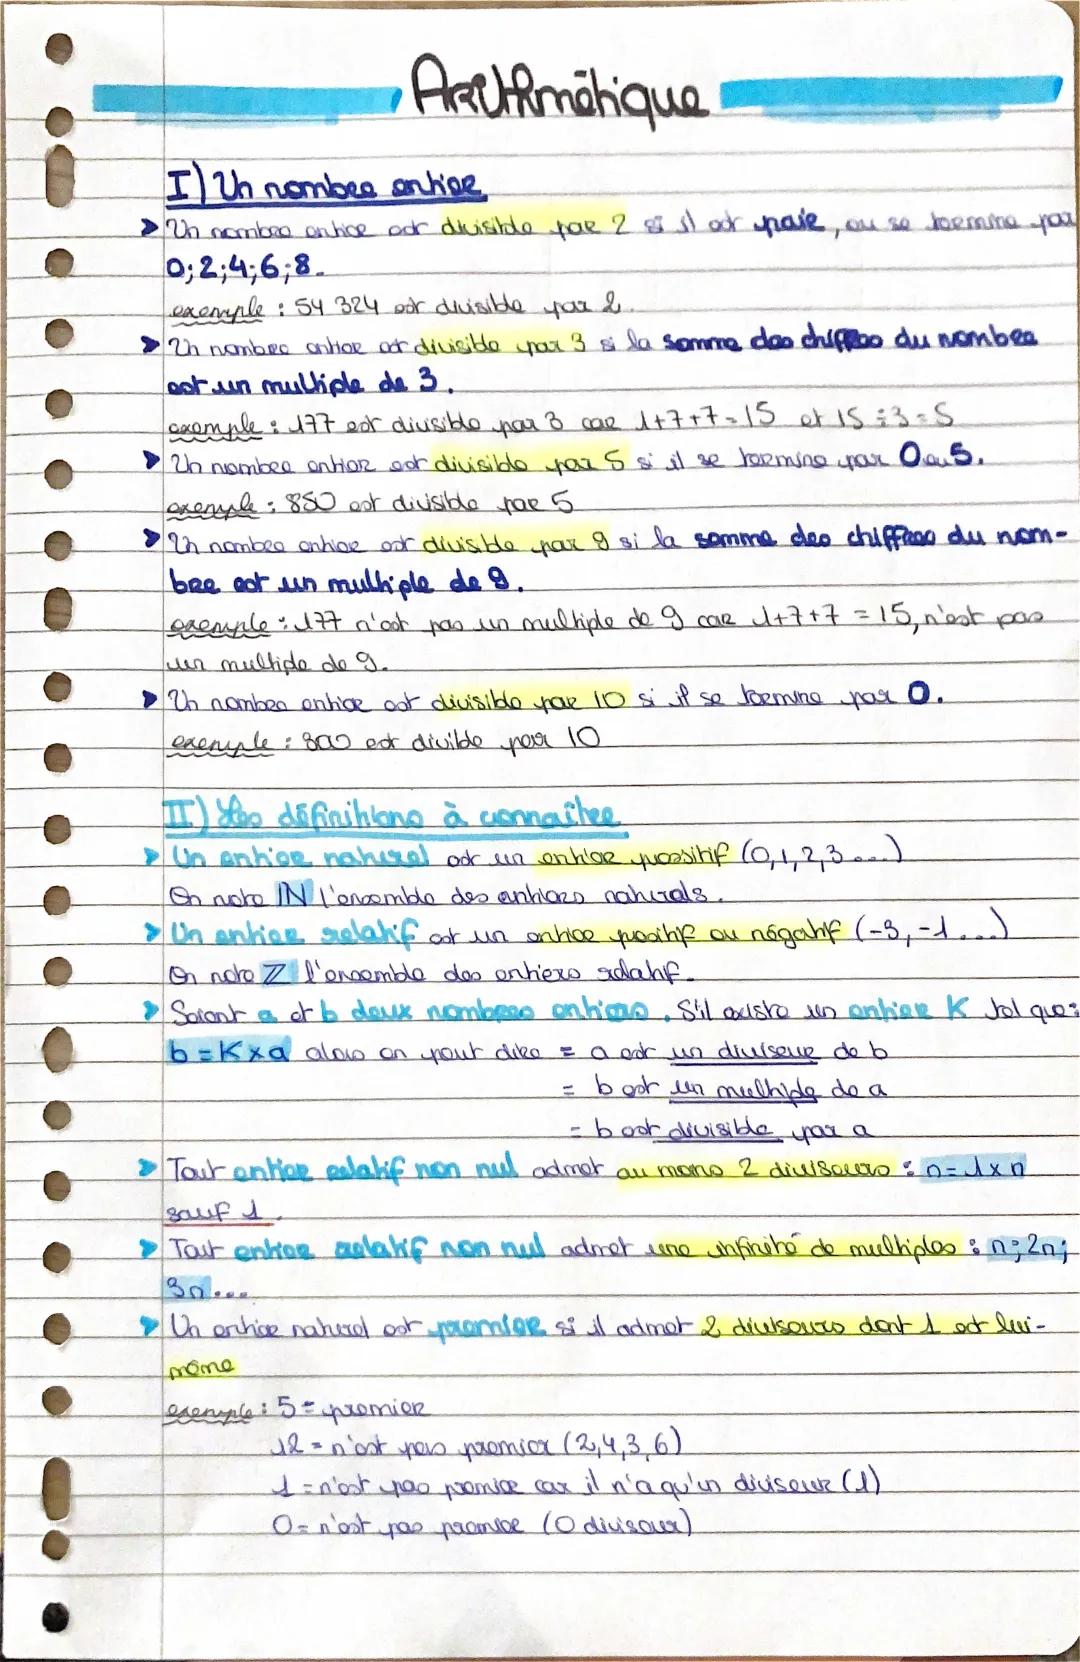 Arithmétique
I) Un nombre entier
> Un nombre entier est divisible par 2 si il est paie, ou se termine par
0;2;4;6;8.
exemple : 54 324 est divisible par 2.
> Un nombre entier est divisible par 3 si la somme des chiffres du nombre
est un multiple de 3.
exemple : 177 est divisible par 3 car 1+7+7=15 et 15÷3=5
> Un nombre entier est divisible par 5 si il se termine par 0 ou 5.
exemple : 850 est divisible par 5
> Un nombre entier est divisible par 9 si la somme des chiffres du nom-
bre est un multiple de 9.
exemple : 177 n'est pas un multiple de 9 car 1+7+7 = 15, n'est pas
un multiple de 9.
> Un nombre entier est divisible par 10 si il se termine par 0.
exemple : 800 est divible par 10
II) Les définitions à connaître
> Un entier naturel est un entier possitif (0,1,2,3...)
On note IN l'ensemble des entiers naturels.
> Un entier relatif est un entier positif ou négatif (-3,-1...)
On note Z l'ensemble des entiers relatif.
> Soient a et b deux nombres entiers. S'il existe un entier K tel que:
b=K×a alors on peut dire = a est un diviseur de b
= b est un multiple de a
= b est divisible par a
> Tout entier relatif non nul admet au moins 2 diviseurs : n=1×n
sauf 1.
> Tout entier relatif non nul admet une infinité de multiples : n; 2n;
3n...
> Un entier naturel est premier si il admet 2 diviseurs dont 1 et lui-
même
exemple : 5 = premier
12 = n'est pas premier (2,4,3,6)
1 = n'est pas premier car il n'a qu'un diviseur (1)
0 = n'est pas premier (0 diviseur)